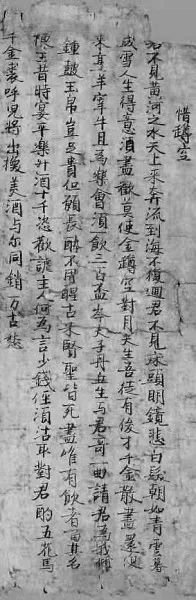 惜罇空
君不見黃河之水天上來奔流到海不復迴君不見床頭明鏡悲白髮朝如青雲暮
成雪人生得意須盡歡莫使金罇空對月天生吾徒有俊才千金散盡還復
來烹羊宰牛且為樂會須一飲三百盃岑夫子丹丘生与君哥一曲請君為我傾
鍾鼓玉帛豈足貴但願長醉不用醒古來賢聖皆死盡唯有飲者留其名
陳王昔時宴平樂斗酒十千恣歡謔主人何為言少錢徑須沽取對君酌五花馬
千金裘呼兒將出換美酒与尓同銷万古愁